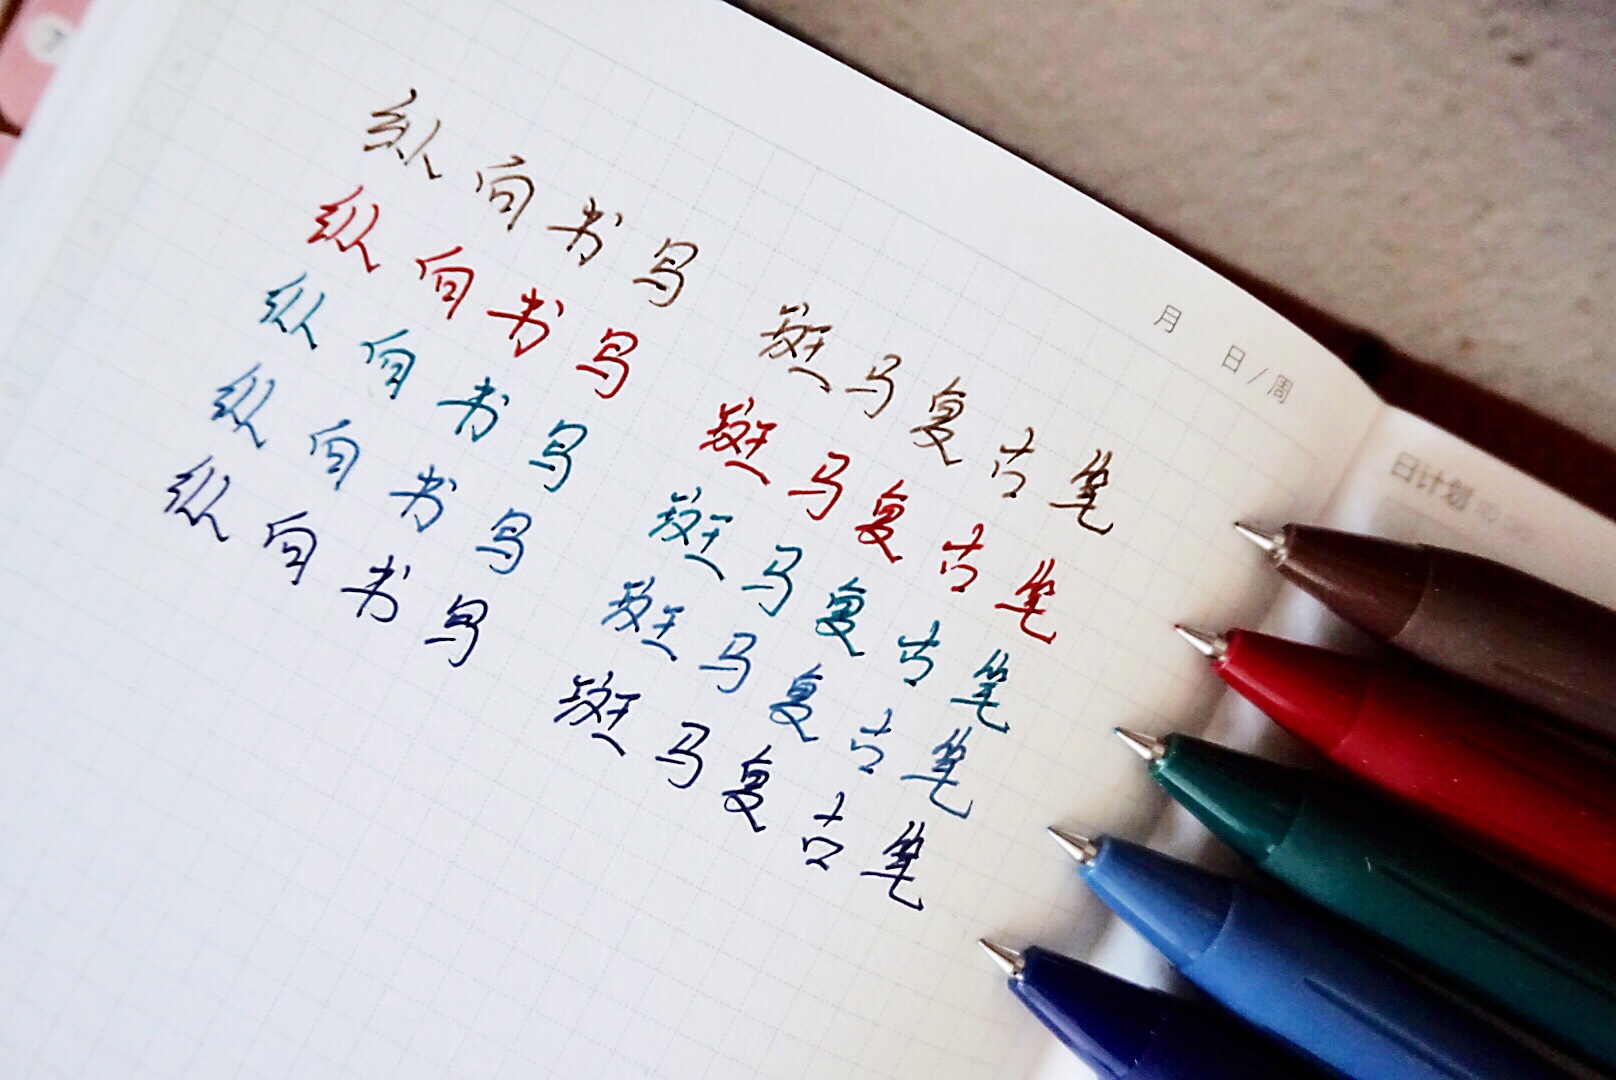 纵向书写 斑马复古笔
纵向书写 斑马复古笔
纵向书写 斑马复古笔
纵向书写 斑马复古笔
纵向书写 斑马复古笔
月 日/周
日计划